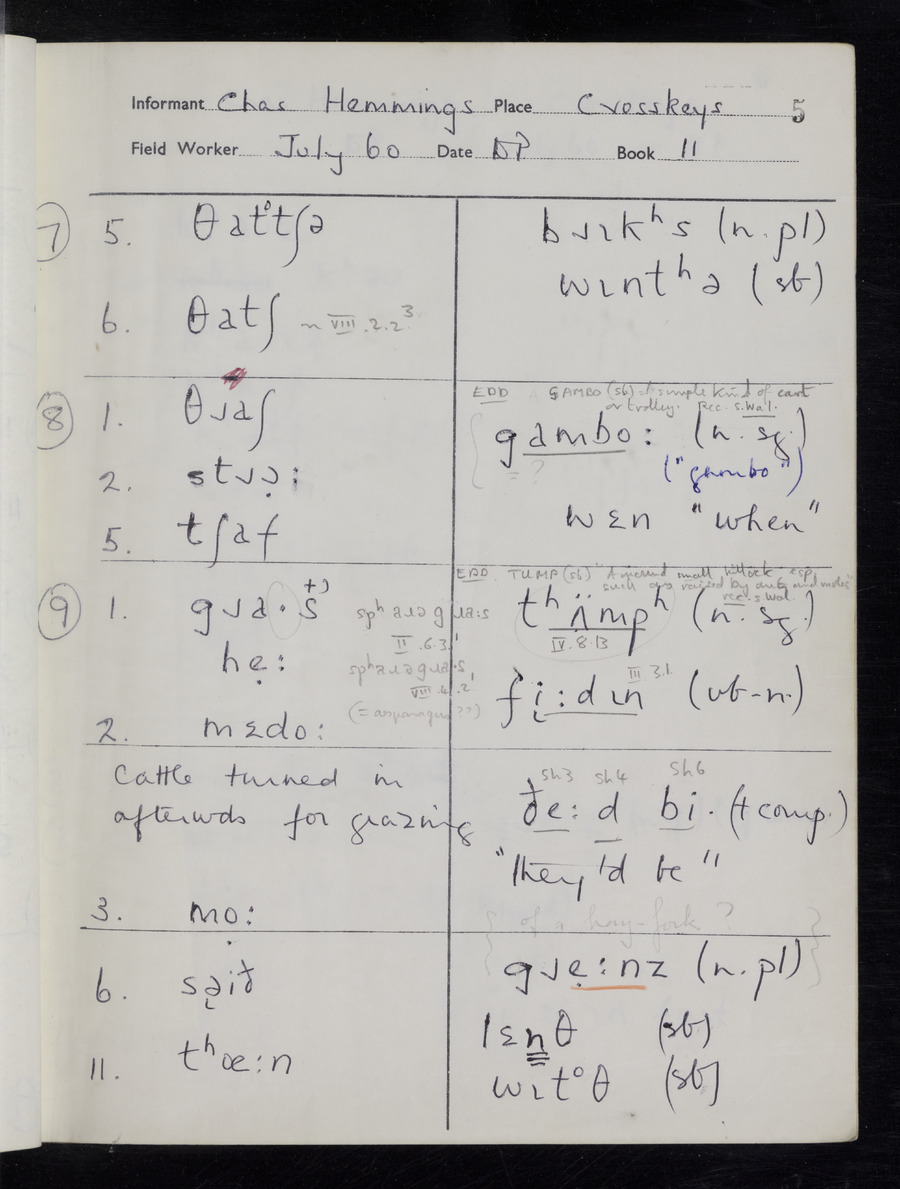 Informant Chas Hemmings Place Crosskeys 5
Field Worker July 60 Date DP Book 11
7
5. θatᵒtʃə
bɹɪkʰs (n.pl)
wɪntʰə (sb)
6. θatʃ ~ VIII.2.2³
8
1. θɹaʃ
EDD GAMBO (sb) A simple kind of cart
or trolley. Rec. S.Wal.
gambo: (n.sg.)
("gambo")
2. stɹɔ̣:
wɛn "when"
5. tʃaf
9
1. gɹa·s
EDD TUMP (sb) "A mound small hillock esp.
such as raised by ants and moles"
rec. S.Wal.
tʰʌ̈mpʰ (n.sg.)
IV.8.13
spʰaɹəgɹa:s
II.6.3
hẹ:
spʰaɹəgɹa:s
VIII.4.2
(= asparagus??)
fi̜:dɪn (vb-n.)
III 3.1.
2. mɛdo:
Cattle turned in
afterwds for grazing
Sh3 Sh4 Sh6
ðe: d bi· (+comp.)
"they'd be"
3. mọ:
of a hay-fork?
6. sə̜ið
gɹẹ:nz (n.pl)
lɛnθ (sb)
11. tʰœ:n
wɪtᵒθ (sb)